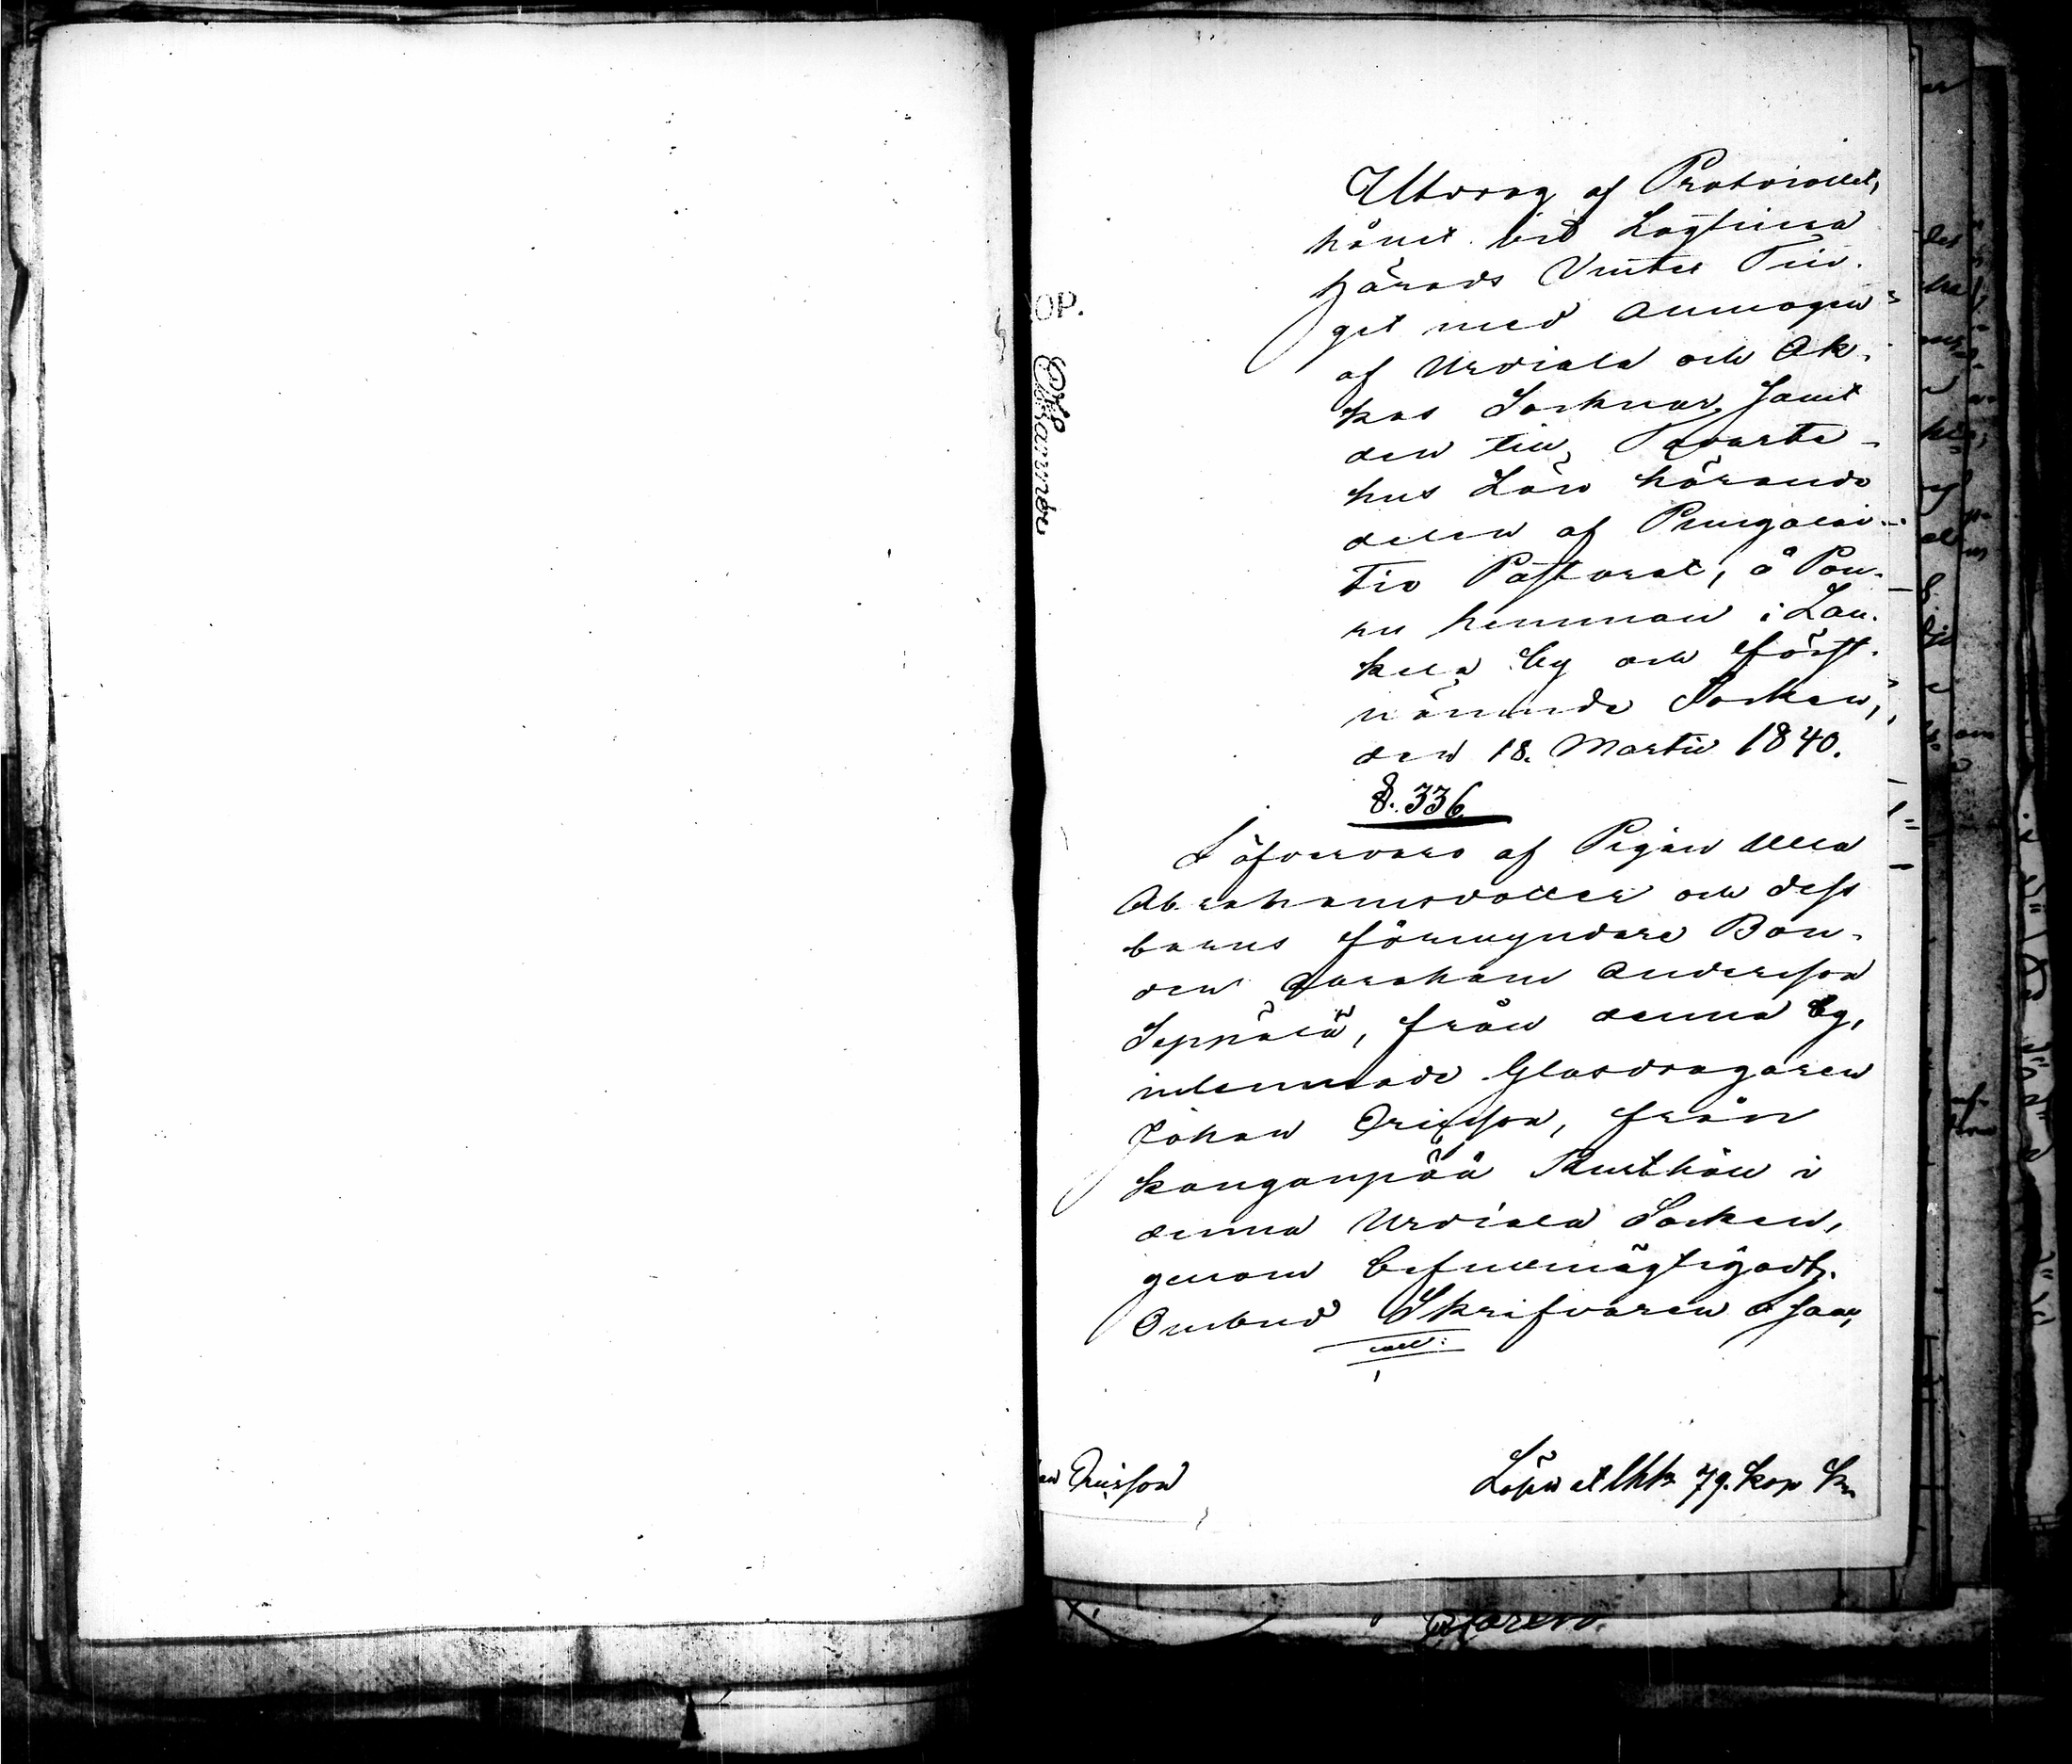 Utdrag af Protocollet,
hållet vid Lagtima
härads Vinter Tin-
get med Allmogen
af Urdiala och Ak-
kas Socknar, samt
den till Tavaste-
hus Län hörande
delen af Pungalai-
tio Pastorat, å Pou-
ru hemman i Lau-
kela by och först-
nämnde Socken,
den 18. Martii 1840.
§. 336
I öfvervaro af Pigan Ulla
Abrahamsdotter och dess
barns förmyndare Bon-
den Abraham Andersson
Seppälä, från denna by,
inlemnade Glasdragaren
Johan Ericsson, från
Kanganpää Rusthåll i
denna Urdiala Socken,
genom befullmägtigadt
Ombud Skrifvaren
Ericsson
Lösen 79. kop
OP.